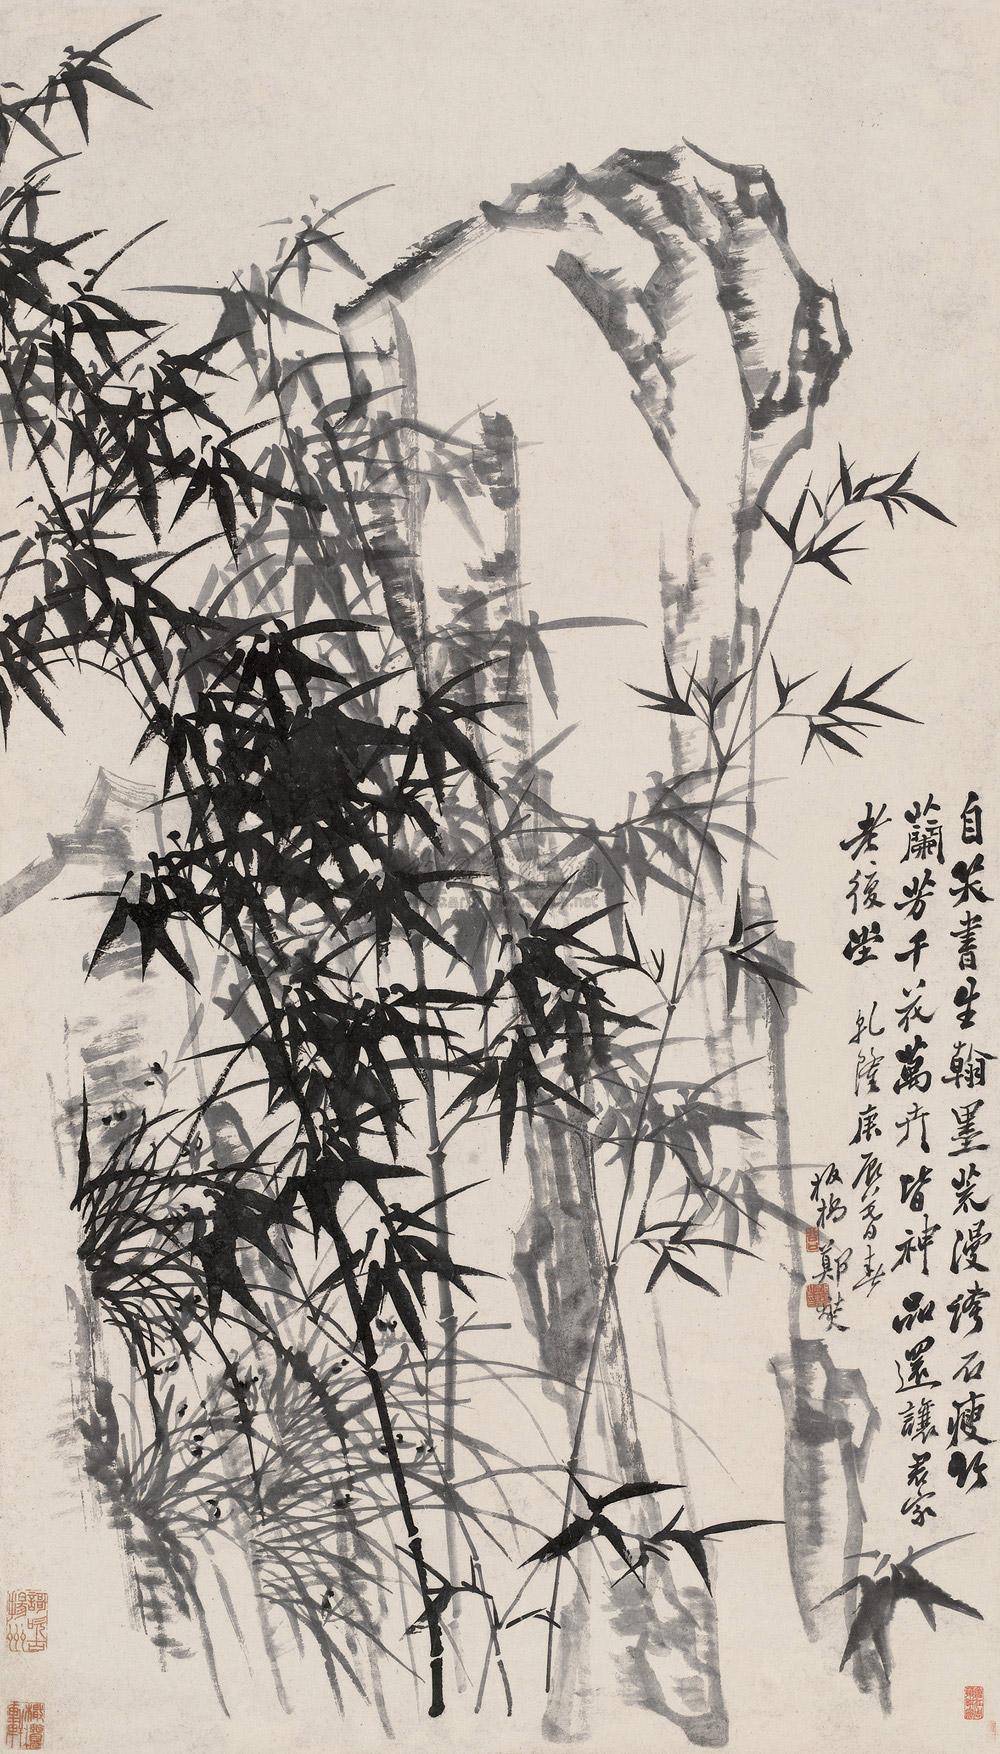 自笑書生翰墨荒漫誇石瘦竹
蘭芳千花萬卉皆神品還讓君家
老復堂
乾隆庚辰暮春
板橋鄭燮
歌吹古揚州